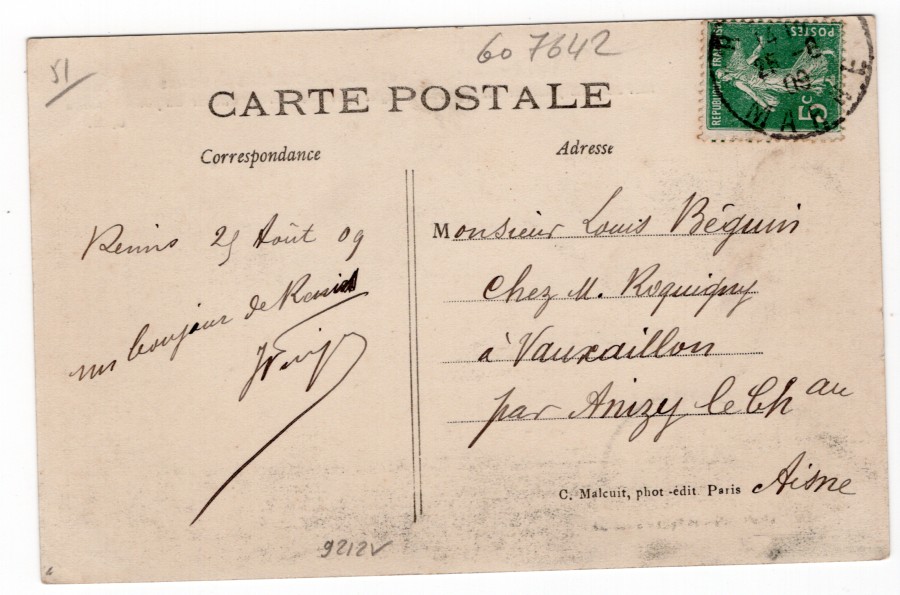 51
60 7642
CARTE POSTALE
Correspondance
Adresse
RÉPUBLIQUE FRANÇAISE
POSTES
5c
MARNE
25
09
Reims 25 Août 09
un bonjour de Reims
Monsieur Louis Béguin
chez M. Roquigny
à Vauxaillon
par Anizy le Chau
Aisne
C. Malcuit, phot-édit Paris
9212V